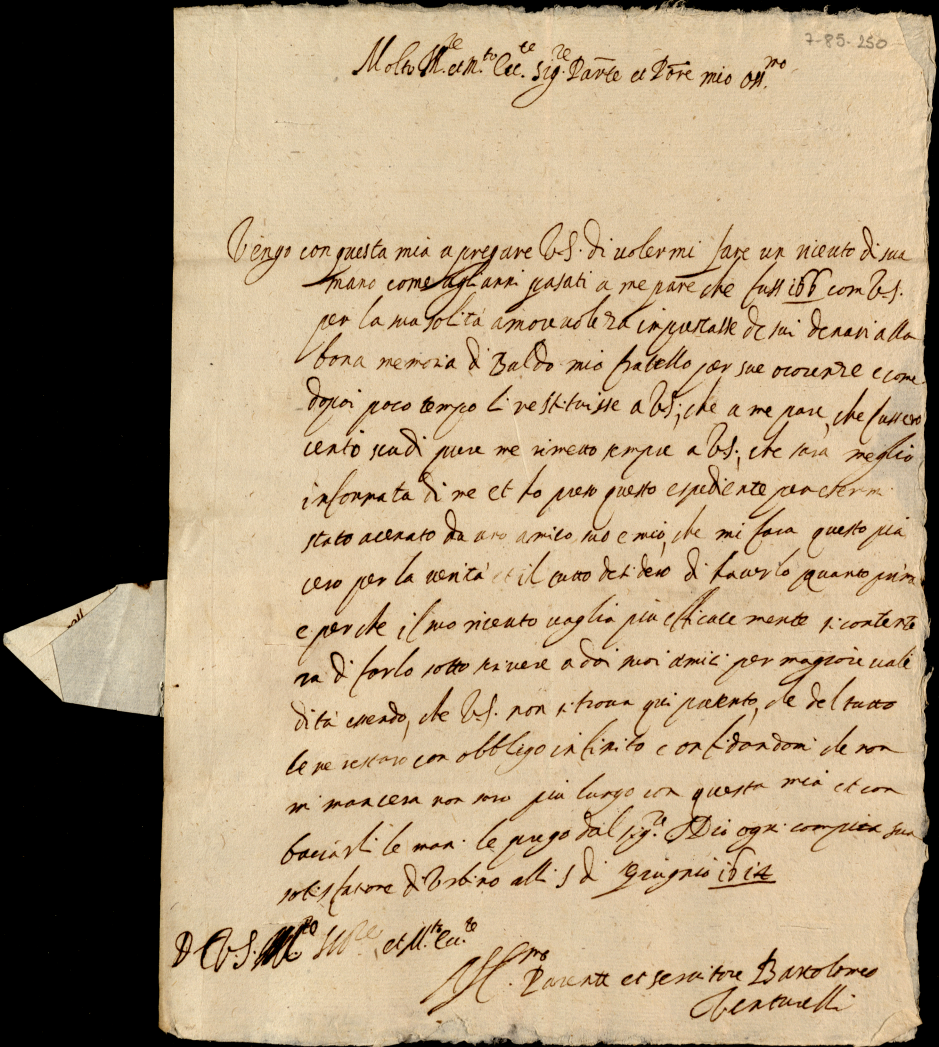 7-85-250
Molto Ill.re et M.to Ecc.te Sig.re Pare͞nte et P͞one mio oss.mo
Vengo con questa mia a pregare V.S. di volermi fare un riceuto di sua
mano come agli anni pasati a me pare che fussi 166 com V.S.
per la sua solita amorevoleza imprestasse de sui denari alla
bona memoria di Baldo mio fratello per sue ocorenze e come
dopoi poco tempo li restituisse a VS; che a me pare, che fussero
cento scudi pure me rimetto sempre a VS; che sara meglio
informata di me et ho preso questo espediente per esermi
stato acenato da uno amico suo e mio, che mi faca questo pia
cero per la verita et il tutto desidero di haverlo quanto prima
e perche il suo riceuto vaglia piu efficace mente si contente
ra di farlo sotto scrivere a doi suoi amici per magiore vali
dita essendo, che V.S. non si trova qui presento, che del tutto
le ne restaro con obbligo infinito e confidandomi che non
mi mancera non saro piu lungo con questa mia et con
baciarli le mani le prego dal sig.re Dio ogni compiera sua
satisfatione di Urbino alli 5 di Giugnio 1614
D V.S. M.to Ill.re et M.to Ecc.te
Aff.mo Parente et servitore Bartolomeo
Venturelli